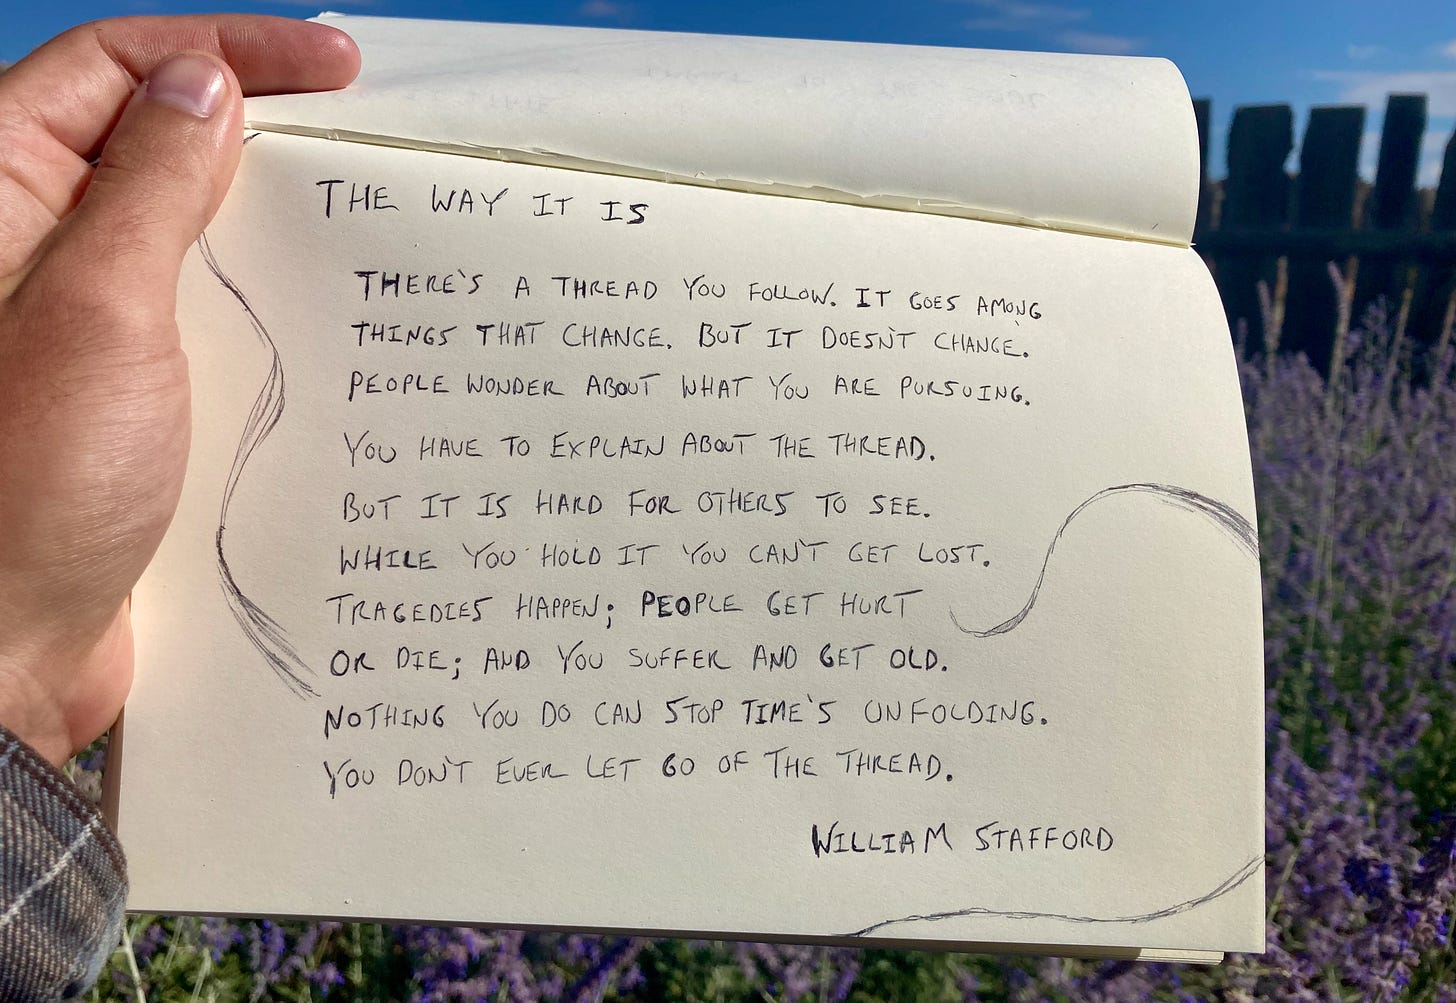 THE WAY IT IS
THERE'S A THREAD YOU FOLLOW. IT GOES AMONG
THINGS THAT CHANGE. BUT IT DOESN'T CHANGE.
PEOPLE WONDER ABOUT WHAT YOU ARE PURSUING.
YOU HAVE TO EXPLAIN ABOUT THE THREAD.
BUT IT IS HARD FOR OTHERS TO SEE.
WHILE YOU HOLD IT YOU CAN'T GET LOST.
TRAGEDIES HAPPEN; PEOPLE GET HURT
OR DIE; AND YOU SUFFER AND GET OLD.
NOTHING YOU DO CAN STOP TIME'S UNFOLDING.
YOU DON'T EVER LET GO OF THE THREAD.
WILLIAM STAFFORD